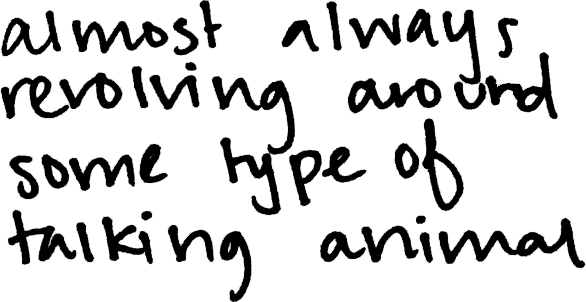 almost always
revolving around
some type of
talking animal